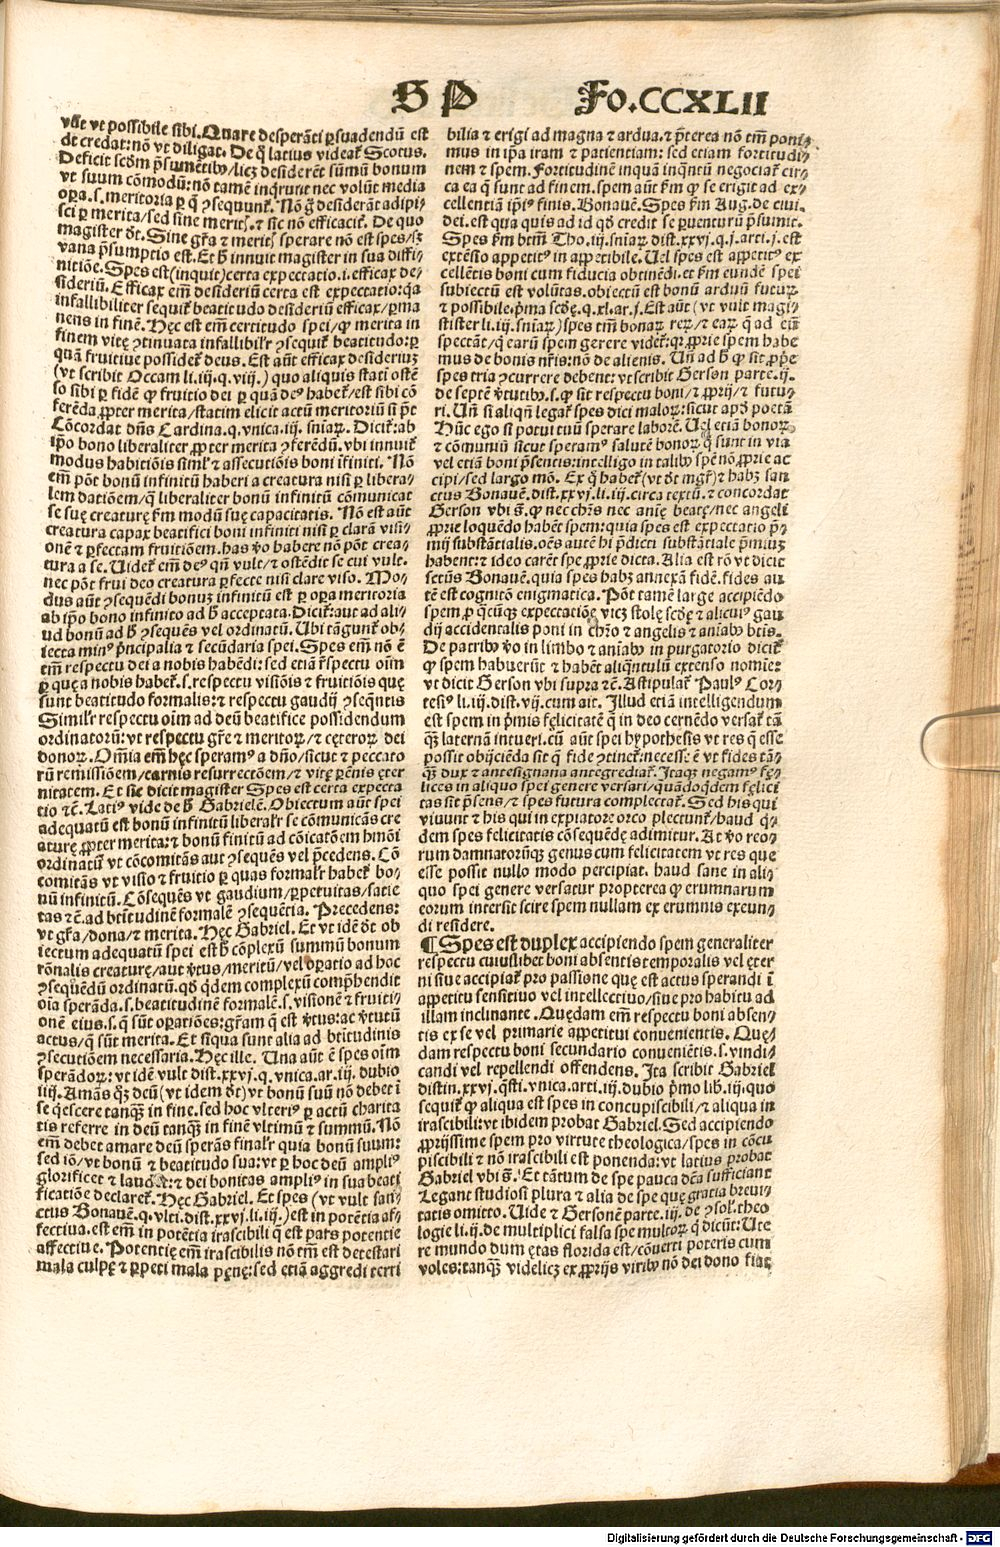 S P Fo.CCXLII
vt possibile sibi. Quare desperāti ꝑsuadendū est
vt credat: nō vt diligat. De q̄ latius videat̃ Scotus.
vt suum cōmodū: nō tamē inq̄runt nec volūt media
sci ꝑ merita/sed sine merit̃. ⁊ sic nō efficacit̃. De quo
magister d̄t. Sine gr̄a ⁊ merit̃ sperare nō est spes/sꝫ
vana p̄sumptio est. Et h̄ innuit magister in sua diffi-
nitiōe. Spes est (inquit) certa expectatio.i. efficax de-
sideriū. Efficax em̄ desideriū certa est expectatio: q̄a
infallibiliter sequit̃ beatitudo desideriū efficax/ꝑma
nens in finē. Hęc est em̄ certitudo spei/ꝙ merita in
finem vitę ꝯtinuata infallibilr̄ ꝯsequit̃ beatitudo: ꝑ
quā fruitiue possidet̃ deus. Est aūt efficax desideriuꝫ
(vt scribit Occam li.iij.q.viij.) quo aliquis stati ostē
so sibi ꝑ fidē ꝙ fruitio dei ꝑ quā de⁹ habet̃/est sibi cō
ferēda ꝓpter merita/statim elicit actū meritoriū si p̄t
Cōcordat dn̄s Cardina.q.vnica.iij. sniaꝝ. Dicit̃: ab
ip̄o bono liberaliter ꝓpter merita ꝯferēdū. vbi innuit̃
modus habitiōis siml̃ ⁊ assecutiōis boni īfiniti. Nō
em̄ pōt bonū infinitū haberi a creatura nisi ꝑ libera-
lem datiōem/q̄ liberaliter bonū infinitū cōmunicat
se suę creaturę ẜm modū suę capacitatis. Nō est aūt
creatura capax beatifici boni infiniti nisi ꝑ clarā visi-
onē ⁊ ꝑfectam fruitiōem. has v̄o habere nō pōt crea-
tura a se. Uidet̃ em̄ de⁹ qn̄ vult/⁊ ostēdit se cui vult.
nec pōt frui deo creatura ꝑfecte nisi clare viso. Mo-
dus aūt ꝯsequēdi bonuꝫ infinitū est ꝑ oꝑa meritoria
ab ip̄o bono infinito ad h̄ acceptata. Dicit̃: aut ad ali-
ud bonū ad h̄ ꝯsequēs vel ordinatū. Ubi tāgunt̃ ob-
iecta min⁹ p̄ncipalia ⁊ secūdaria spei. Spes em̄ nō ē
tm̄ respectu dei a nobis habēdi: sed etiā r̄spectu oīm
ꝑ quę a nobis habet̃.s. respectu visiōis ⁊ fruitiōis quę
sunt beatitudo formalis: ⁊ respectu gaudij ꝯseq̄ntis
Similr̄ respectu oīm ad deū beatifice possidendum
ordinatorū: vt respectu gr̄e ⁊ meritoꝝ/⁊ cęteroꝝ dei
donoꝝ. Om̄ia em̄ hęc speram⁹ a dn̄o/sicut ⁊ peccato
rū remissiōem/carnis resurrectōem/⁊ vitę ꝑēnis ęter
nitatem. Et sic dicit magister Spes est certa expecta
tio ⁊c̄. Lati⁹ vide de h̄ Gabrielē. Obiectum aūt spei
adequatū est bonū infinitū liberalr̄ se cōmunicās cre
aturę ꝓpter merita: ⁊ bonū finitū ad cōicatōem hmōi
ordinatū vt cōcomitās aut ꝯsequēs vel p̄cedens. Cō
comitās vt visio ⁊ fruitio ꝑ quas formalr̄ habet̃ bo-
nū infinitū. Cōsequēs vt gaudium/ꝑpetuitas/satie
tas ⁊c̄. ad btītudinē formalē ꝯsequētia. Precedens:
vt gr̄a/dona/⁊ merita. Hęc Gabriel. Et vt idē d̄t ob
iectum adequatū spei est h̄ cōplexū summū bonum
rōnalis creaturę/aut v̄tus/meritū/vel oꝑatio ad hoc
ꝯsequēdū ordinatū. qd̄ q̄dem complexū comp̄hendit
oīa sperāda.s. beatitudinē formalē.s. visionē ⁊ fruiti-
onē eius.s. q̄ sūt oꝑatiōes: gr̄am q̄ est v̄tus: ac v̄tutū
actus/q̄ sūt merita. Et siqua sunt alia ad btītudinis
ꝯsecutiōem necessaria. Hęc ille. Una aūt ē spes oīm
sperādoꝝ: vt idē vult dist.xxvj.q.vnica.ar.iij. dubio
iiij. Amās q̄ꝫ deū (vt idem d̄t) vt bonū suū nō debet ī
se q̄escere tanq̄ꝫ in fine. sed hoc vlteri⁹ ꝑ actū charita
tis referre in deū tanq̄ꝫ in finē vltimū ⁊ summū. Nō
em̄ debet amare deū sperās finalr̄ quia bonū suum:
sed iō/vt bonū ⁊ beatitudo sua: vt ꝑ hoc deū ampli⁹
glorificet ⁊ laudet: ⁊ dei bonitas ampli⁹ in sua beati
ficatiōe declaret̃. Hęc Gabriel. Et spes (vt vult san-
ctus Bonauē.q.vlti.dist.xxvj.li.iij.) est in potētia af-
fectiua. est em̄ in potētia irascibili q̄ est pars potentie
affectiue. Potentię em̄ irascibilis nō tm̄ est detestari
mala culpę ⁊ ꝑpeti mala pęnę: sed etiā aggredi terri
bilia ⁊ erigi ad magna ⁊ ardua. ⁊ p̄terea nō tm̄ poni-
mus in ip̄a iram ⁊ patientiam: sed etiam fortitudi-
nem ⁊ spem. Fortitudinē inquā inq̄ntū negociat̃ cir-
ca ea q̄ sunt ad finem. spem aūt ẜm ꝙ se erigit ad ex-
cellentiā ip̄i⁹ finis. Bonauē. Spes ẜm Aug. de ciui.
dei. est qua quis ad id qd̄ credit se ꝑuenturū p̄sumit.
Spes ẜm btm̄ Tho.iij.sniaꝝ.dist.xxvj.q.j.arti.j. est
extēsio appetit⁹ in appetibile. Uel spes est appetit⁹ ex
cellētis boni cum fiducia obtinēdi. et ẜm eundē spei
subiectū est volūtas. obiectū est bonū arduū futuꝝ
⁊ possibile. p̄ma scd̄ę.q.xl.ar.j. Est aūt (vt vult magi-
stister li.iij.sniaꝝ) spes tm̄ bonaꝝ reꝝ/⁊ eaꝝ q̄ ad eum
spectāt/q̄ earū spem gerere videt̃: qꝛ ꝓprie spem habe
mus de bonis nr̄is: nō de alienis. Un̄ ad h̄ ꝙ sit ꝓpe
spes tria ꝯcurrere debent: vt scribit Gerson parte.ij.
de septē v̄tutibꝰ.s. ꝙ sit respectu boni/⁊ ꝓprij/⁊ futu-
ri. Un̄ si aliqn̄ legat̃ spes dici maloꝝ: sicut apd̄ poetā
Hūc ego si potui tuū sperare laborē. Uel etiā bonoꝝ
⁊ cōmuniū sicut speram⁹ salutē bonoꝝ q̄ sunt in via
vel etiā boni p̄sentis: intelligo in talibꝰ spē nō ꝓprie ac
cipi/sed largo mō. Ex q̄ habet̃ (vt d̄t mgr̄) ⁊ habꝫ san
ctus Bonauē.dist.xxvj.li.iij.circa textū. ⁊ concordat
Gerson vbi s̄. ꝙ nec chr̄s nec anię beatę/nec angeli
ꝓprie loquēdo habēt spem: quia spes est expectatio p̄-
mij substātialis. oēs autē hi p̄dicti substātiale p̄miuꝫ
habent: ⁊ ideo carēt spe ꝓprie dicta. Alia est rō vt dicit
sctūs Bonauē. quia spes habꝫ annexā fidē. fides au
tē est cognitō enigmatica. Pōt tamē large accipiēdo
spem ꝓ q̄cūqꝫ expectatiōe/vicꝫ stolę scd̄ę ⁊ alicui⁹ gau
dij accidentalis poni in chr̄o ⁊ angelis ⁊ anīabꝰ btīs.
De patribꝰ v̄o in limbo ⁊ anīabꝰ in purgatorio dicit̃
ꝙ spem habuerūt ⁊ habēt aliq̄ntulū extenso nomīe:
vt dicit Gerson vbi supra ⁊c̄. Astipulat̃ Paul⁹ Cor-
tesi⁹ li.iij.dist.vij.cum ait. Illud etiā intelligendum
est spem in p̄mis fęlicitatē q̄ in deo cernēdo versat̃ tā
q̄ꝫ laternā intueri. cū aūt spei hypothesis vt res q̄ esse
possit obijciēda sit q̄ fide ꝯtinet̃: necesse ē vt fides tā-
q̄ꝫ dux ⁊ antesignana antegrediat̃. Itaqꝫ negam⁹ fę-
lices in aliquo spei genere versari/quādoq̄dem fęlici
tas sit p̄sens/⁊ spes futura complectat̃. Sed his qui
viuunt ⁊ his qui in expiatore orco plectunt̃/haud q̄-
dem spes felicitatis cōsequēdę adimitur. At v̄o reo-
rum damnatorūqꝫ genus cum felicitatem vt res que
esse possit nullo modo percipiat. haud sane in ali-
quo spei genere versatur propterea ꝙ erumnarum
eorum intersit scire spem nullam ex erumnis exeun-
di residere.
¶ Spes est duplex accipiendo spem generaliter
respectu cuiuslibet boni absentis temporalis vel ęter
ni siue accipiat̃ pro passione que est actus sperandi ī
appetitu sensitiuo vel intellectiuo/siue pro habitu ad
illam inclinante. Quędam em̄ respectu boni absen-
tis ex se vel primarie appetitui conuenientis. Quę-
dam respectu boni secundario conueniētis.s. vindi-
candi vel repellendi offendens. Ita scribit Gabriel
distin.xxvj.q̄sti.vnica.arti.iij.dubio p̄mo lib.iij. quo
sequit̃ ꝙ aliqua est spes in concupiscibili/⁊ aliqua in
irascibili: vt ibidem probat Gabriel. Sed accipiendo
ꝓprijssime spem pro virtute theologica/spes in cōcu
piscibili ⁊ nō irascibili est ponenda: vt latius probat
Gabriel vbi s̄. Et tātum de spe pauca dc̄a sufficiant
Legant studiosi plura ⁊ alia de spe quę gratia breui-
tatis omitto. Uide ⁊ Gersonē parte.iij. de ꝯsol. theo
logie li.ij. de multiplici falsa spe multoꝝ q̄ dicūt: Ute
re mundo dum ętas florida est/cōuerti poteris cum
voles: tanq̄ꝫ videlicꝫ ex ꝓprijs viribꝰ nō dei dono fiat
Digitalisierung gefördert durch die Deutsche Forschungsgemeinschaft - DFG